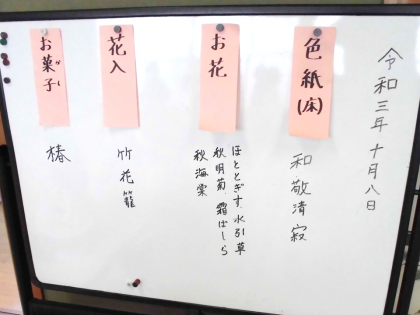 令和三年十月八日
色紙(床)
和敬清寂
お花
ほととぎす、水引草
秋明菊、霜ばしら
秋海棠
花入
竹花籠
お菓子
がし
椿